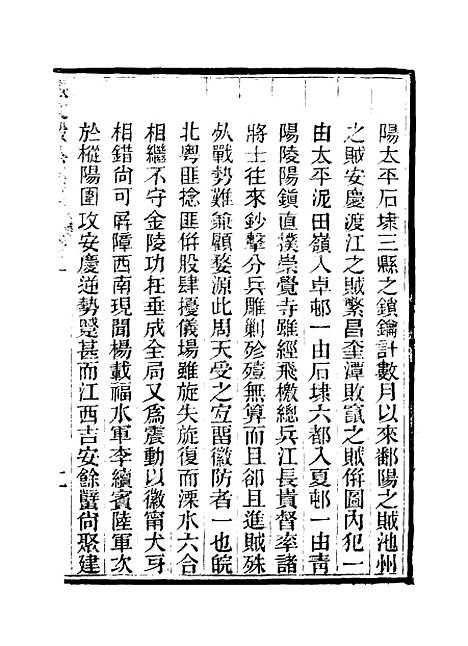 陽太平石埭三縣之鎖鑰計數月以來鄱陽之賊池州
之賊安慶渡江之賊繁昌奎潭敗竄之賊併圖內犯一
由太平泥田嶺入卓邨一由石埭六都入夏邨一由靑
陽陵陽鎭直撲崇覺寺雖經飛檄總兵江長貴督率諸
將士往來鈔擊分兵雕剿殄殪無算而且卻且進賊殊
死戰勢難兼顧婺源此周天受之宜畱徽防者一也皖
北粵匪捻匪併股肆擾儀場雖旋失旋復而溧水六合
相繼不守金陵功枉垂成全局又爲震動以徽甯犬牙
相錯尙可屛障西南現聞楊載福水軍李續賓陸軍次
於樅陽圍攻安慶逆勢蹙甚而江西吉安餘孽尙聚建